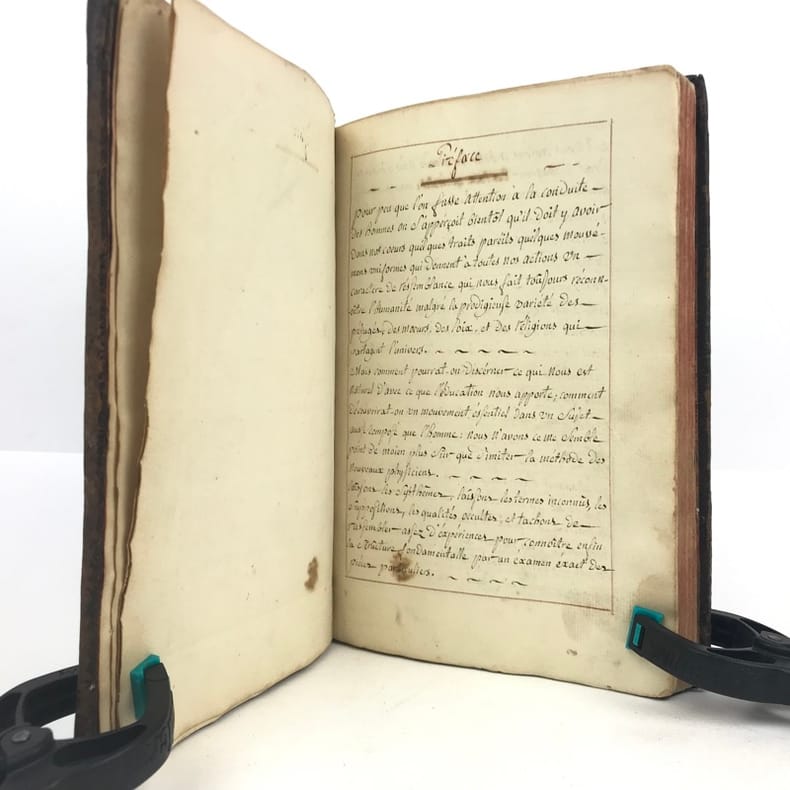 Préface
pour peu que l'on fasse attention à la conduite
des hommes on s'apperçoit bientôt qu'il doit y avoir
dans nos coeurs quelques traits pareils quelques mouve-
mens uniformes qui donnent a toutes nos actions un
caractere de réssemblance qui nous fait toujours réconn-
oitre l'humanité malgré la prodigieuse varieté des
préjugés, des mœurs, des loix, et des réligions qui
partagent l'univers.
Mais comment pourrat-on discérner ce qui nous est
naturel d'avec ce que l'éducation nous apporte; comment
découvrirat-on un mouvement éssentiel dans un sujet
aussi composé que l'homme: nous n'avons ce me semble
point de moien plus sur que d'imiter la methode des
nouveaux physiciens.
laissons les systhêmes, laissons les termes inconnus, les
suppositions, les qualités occultes; et tachons de
rassembler assez d'éxpériences pour connoitre enfin
la structure fondamentalle par un examen exact des
piéces particuliers.